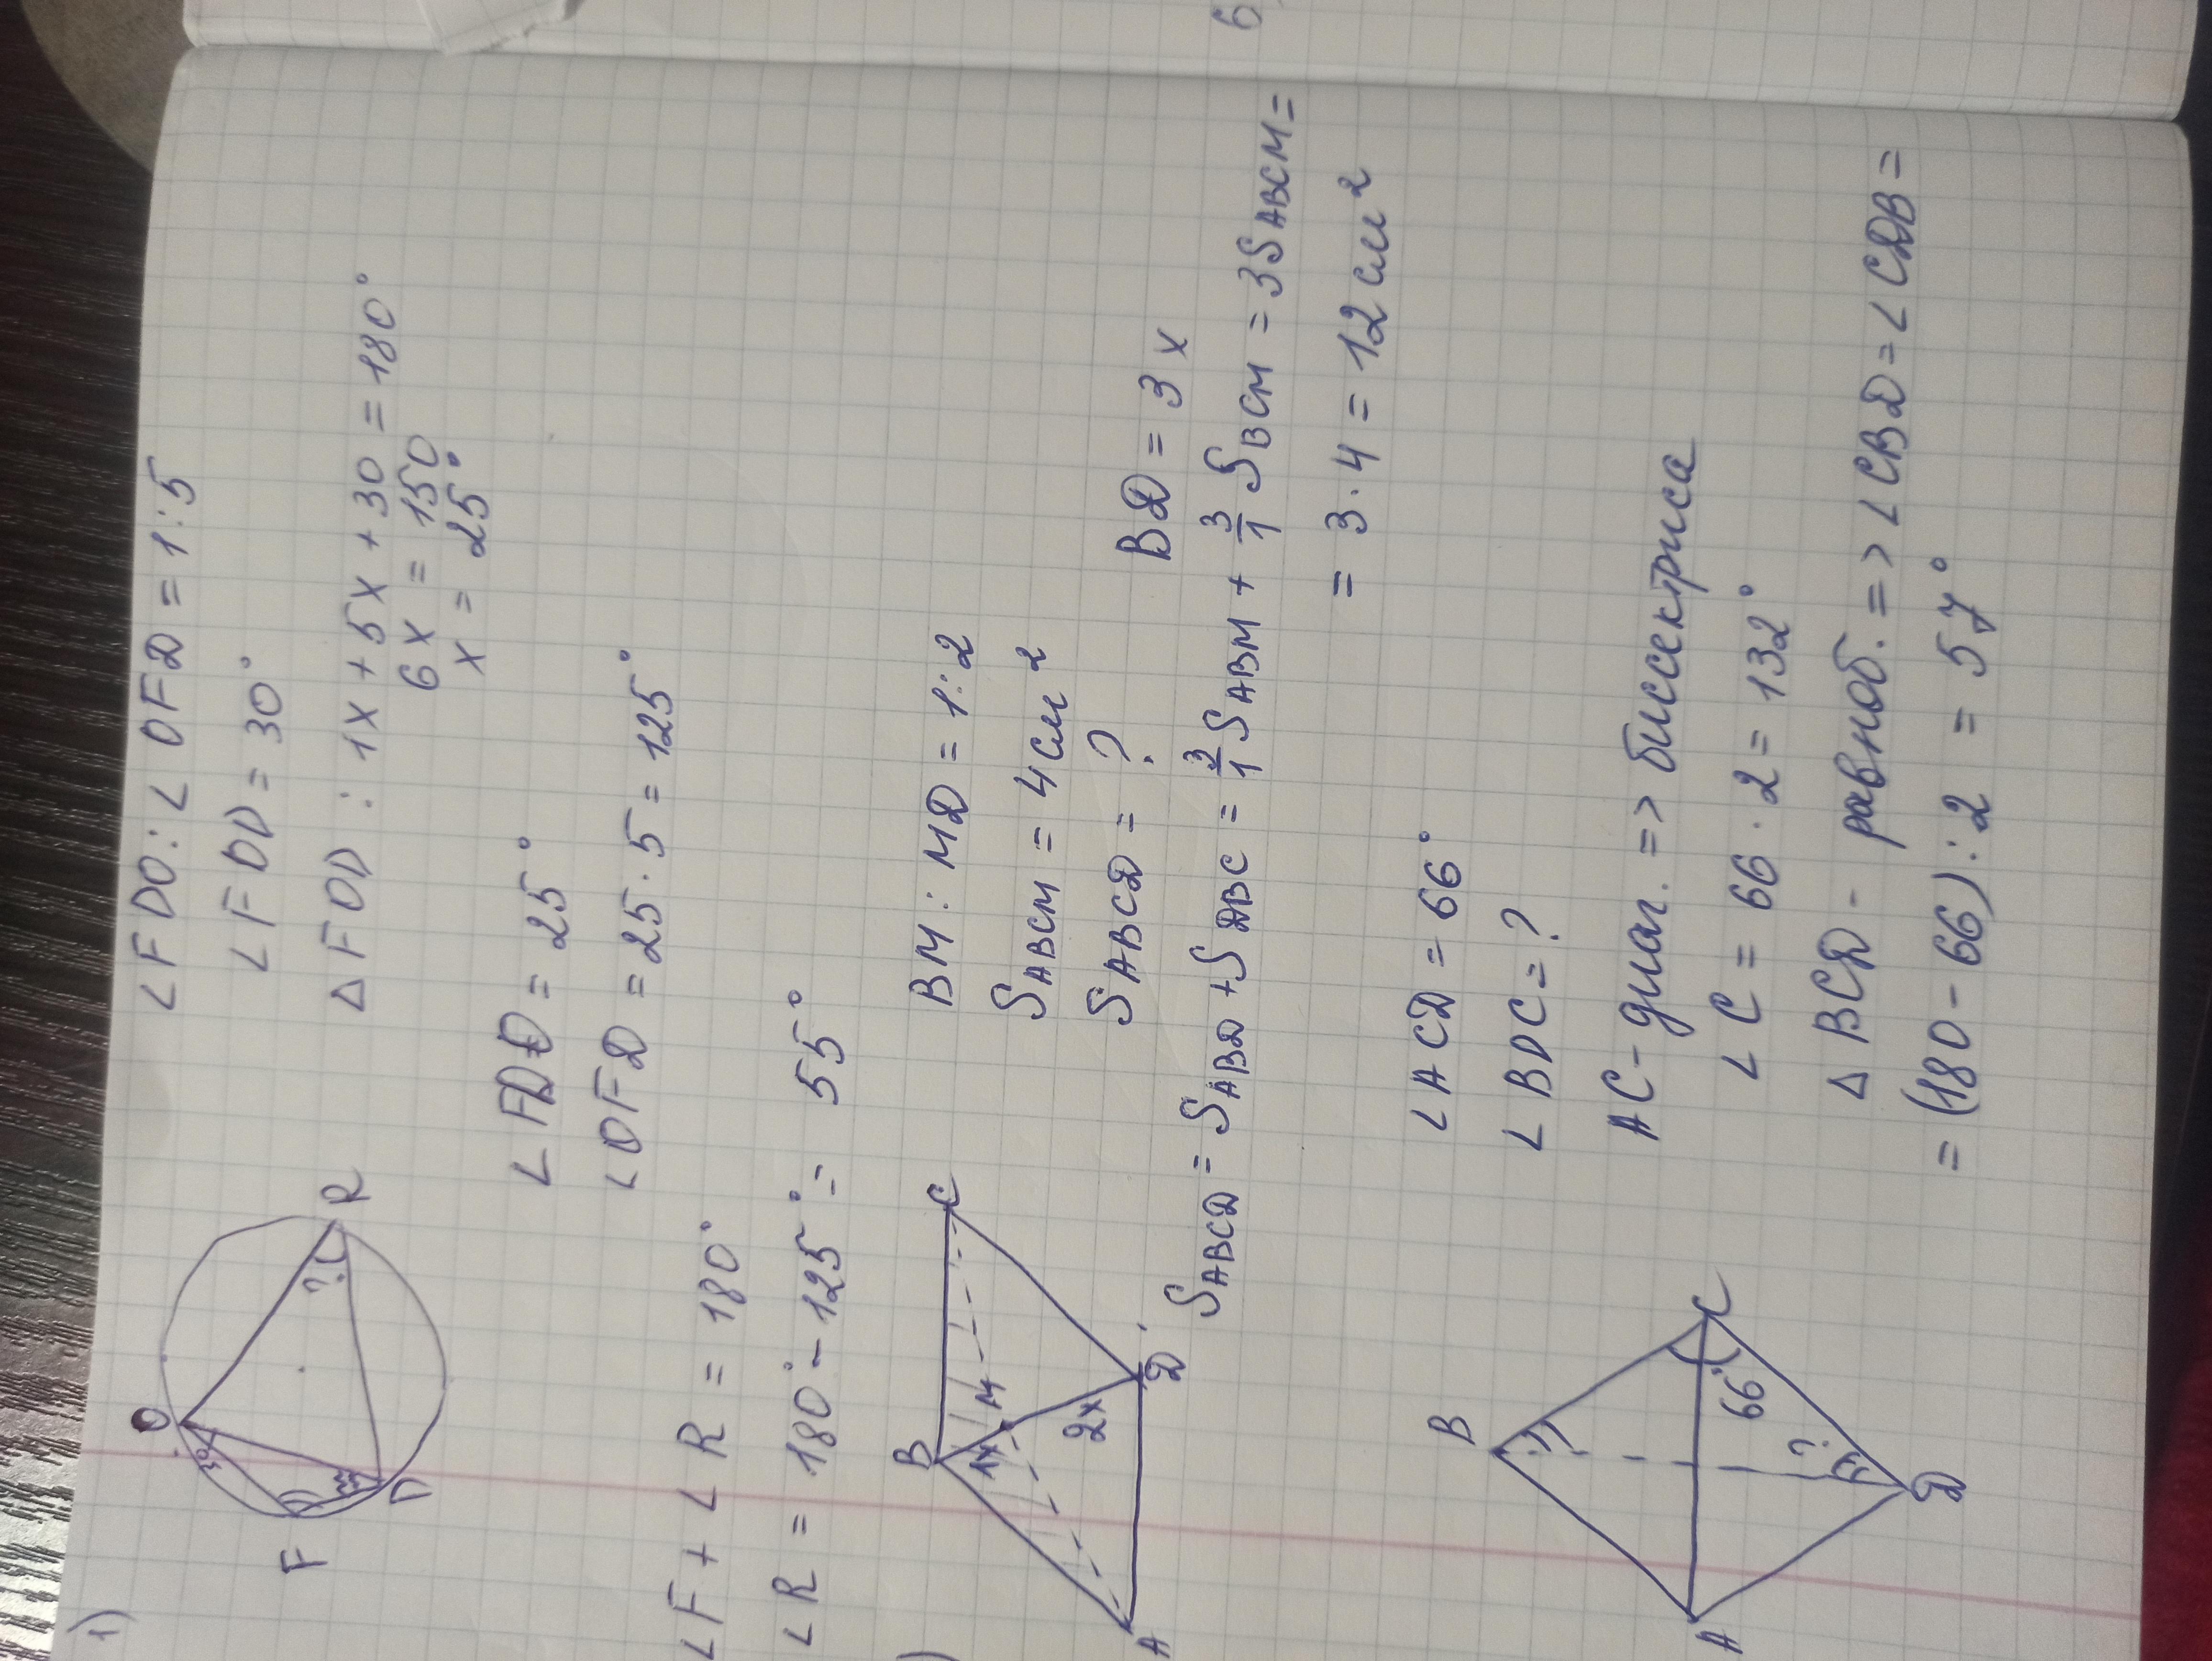 1)
∠FDO : ∠OFD = 1:5
∠FOD = 30°
△FOD : 1x + 5x + 30 = 180°
6x = 150
x = 25°
O
30
F
D
R
?
∠FDO = 25°
∠OFD = 25·5 = 125°
∠F + ∠R = 180°
∠R = 180° - 125° = 55°
)
B
C
M
1x
2x
A
D
BM : MD = 1:2
S ABCM = 4 см²
S ABCD = ?
BD = 3x
S ABCD = S ABD + S DBC = 3/1 S ABM + 3/1 S BCM = 3 S ABCM =
= 3·4 = 12 см²
B
C
66°
?
A
D
∠ACD = 66°
∠BDC = ?
AC - диаг. => биссектриса
∠C = 66·2 = 132°
△BCD - равноб. => ∠CBD = ∠CDB =
= (180 - 66) : 2 = 57°
6